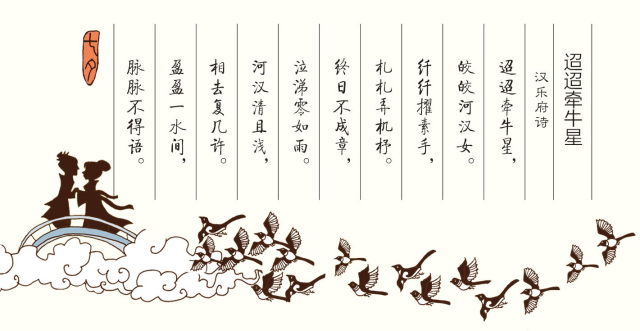 迢迢牵牛星
汉乐府诗
迢迢牵牛星，
皎皎河汉女。
纤纤擢素手，
札札弄机杼。
终日不成章，
泣涕零如雨。
河汉清且浅，
相去复几许。
盈盈一水间，
脉脉不得语。
七夕